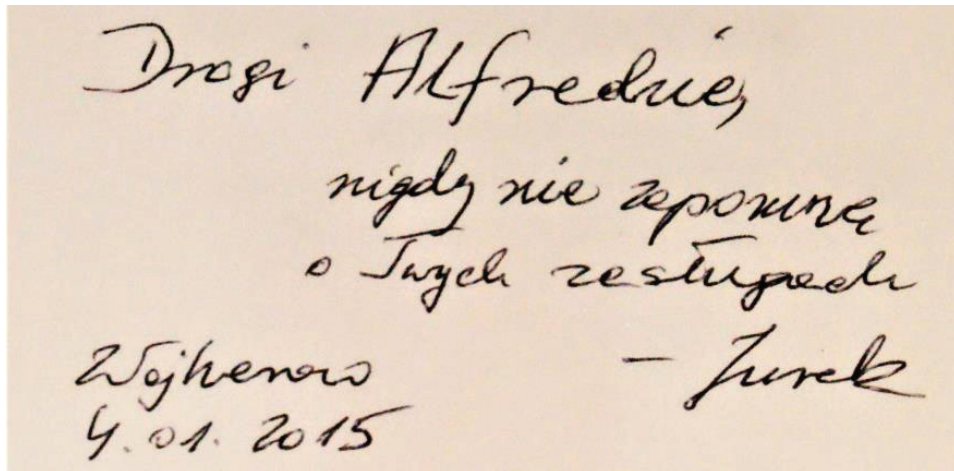 Drogi Alfredzie,
nigdy nie zapomnę
o Twych zasługach
Wejherowo
– Jurek
4.01.2015